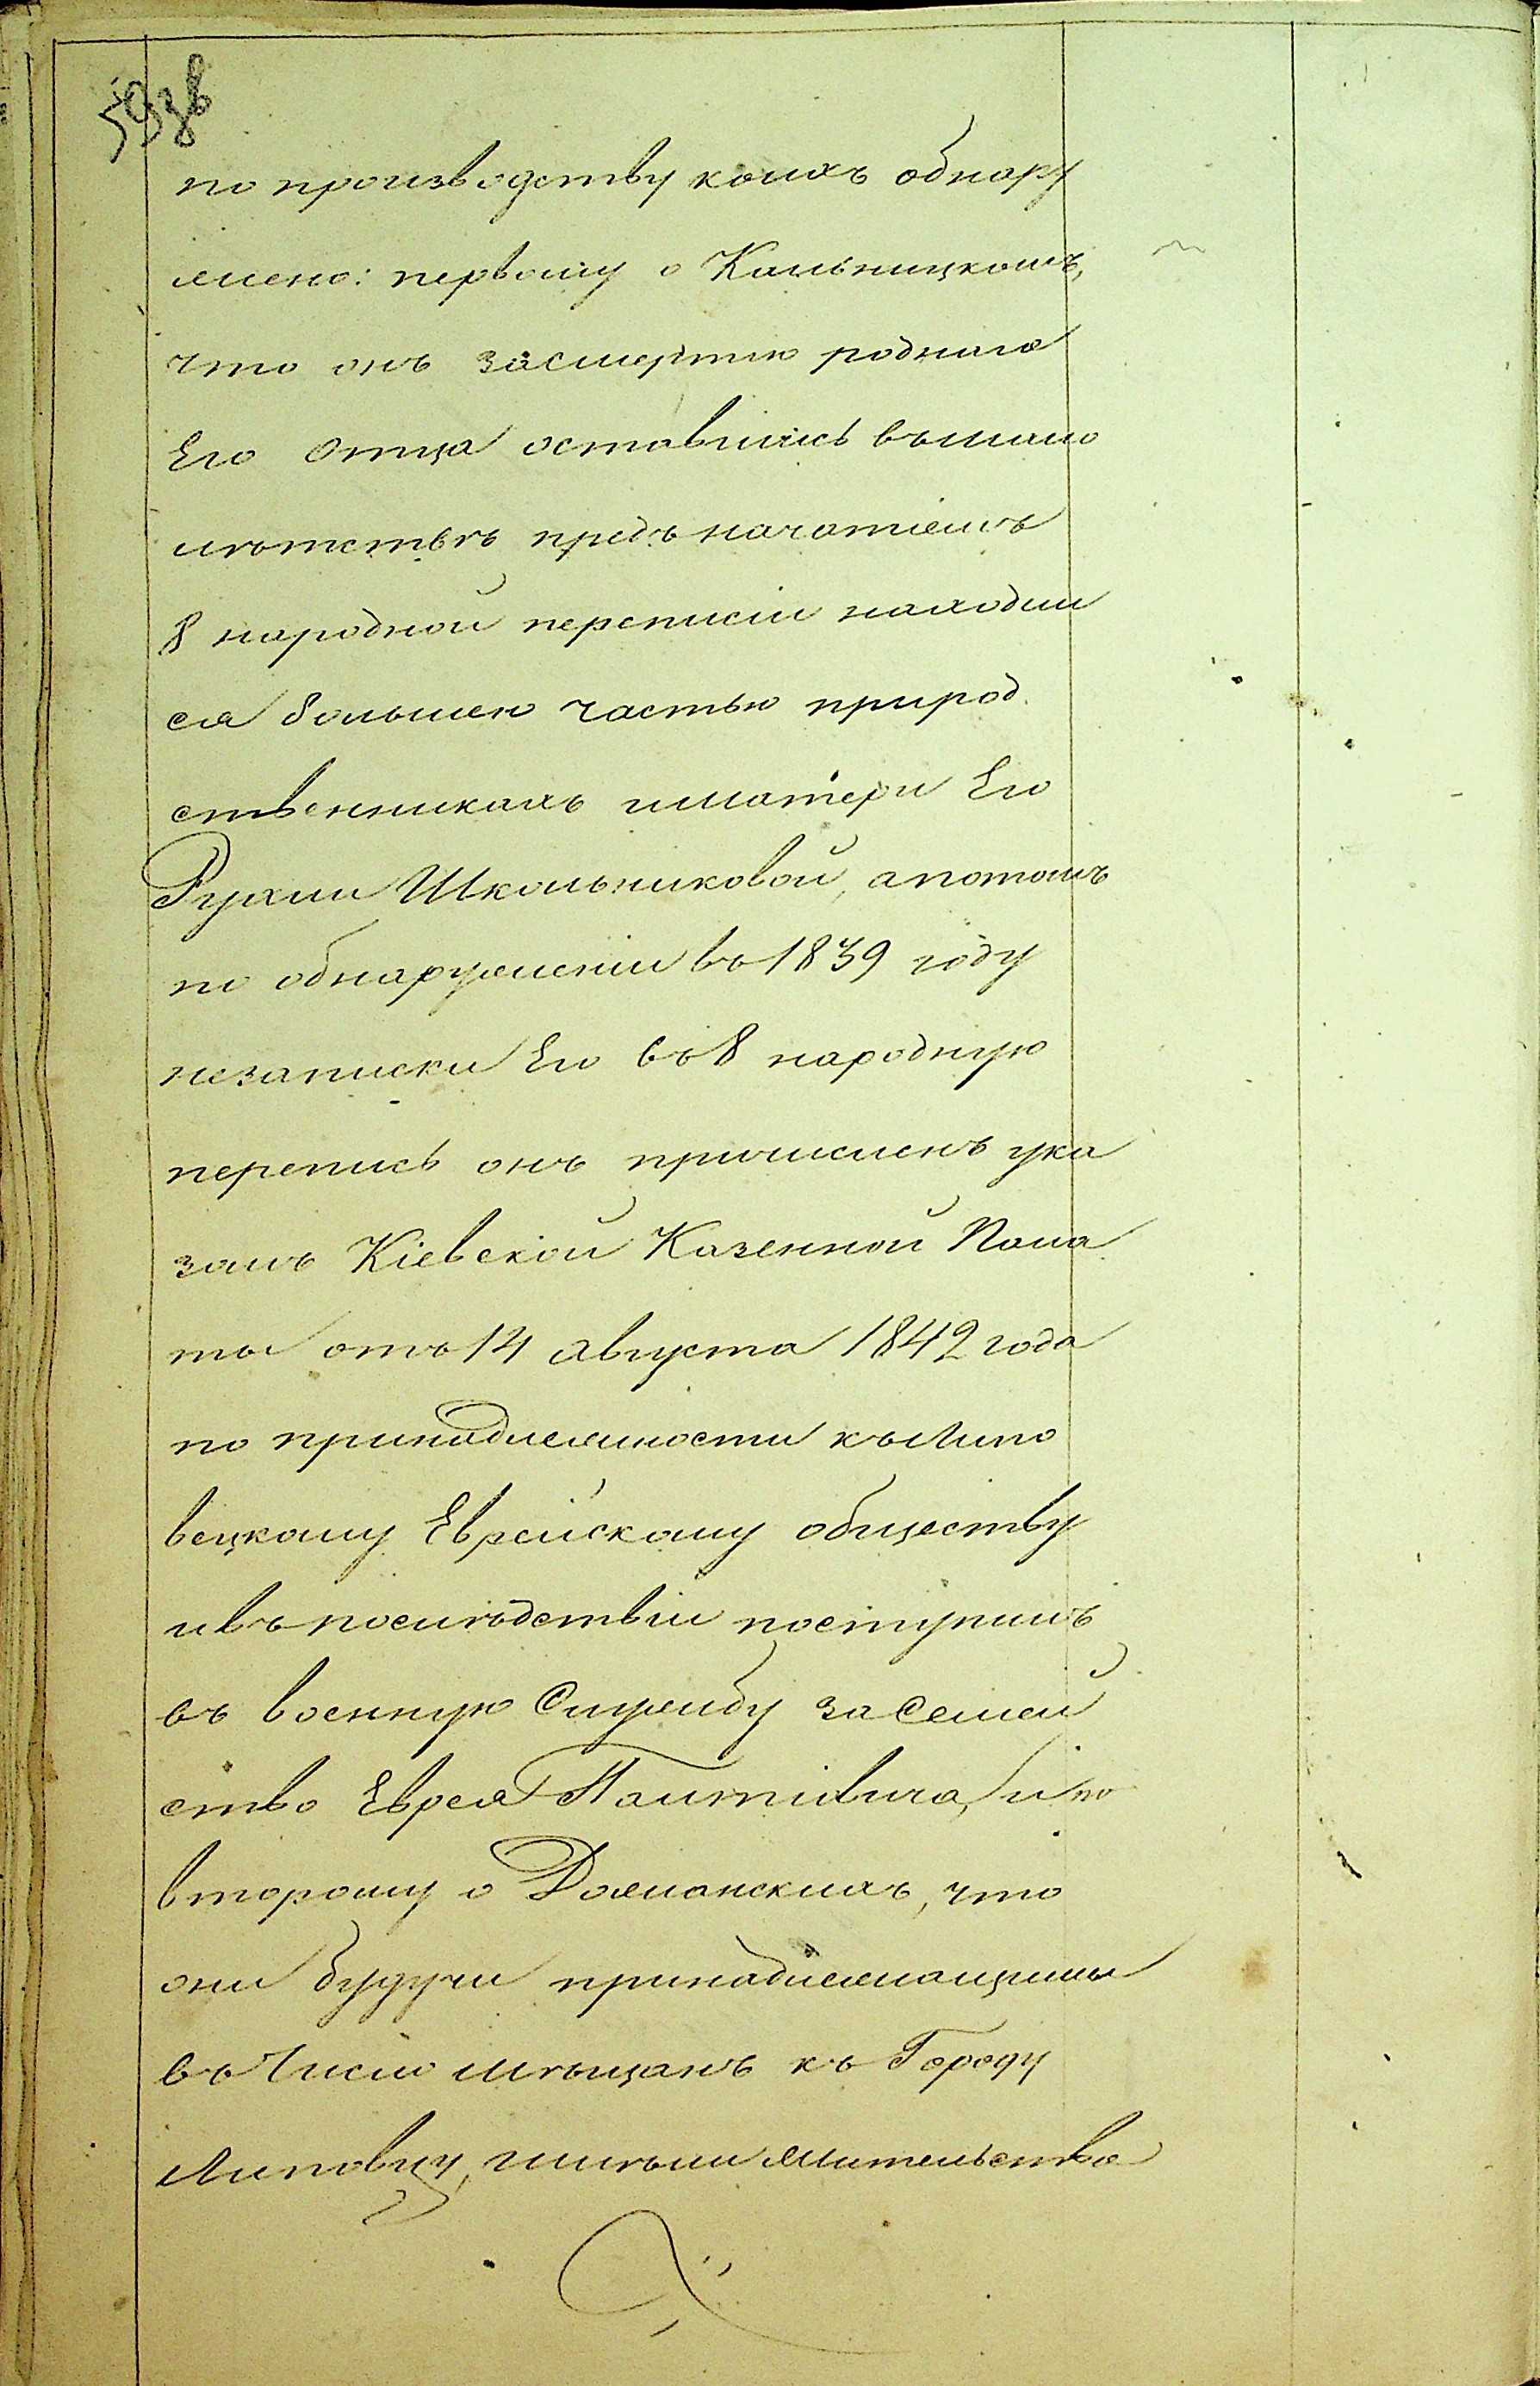 593в
по производству коихъ обнару
жено: первому о Кальницкомъ,
что онъ засмертію роднаго
Его Отца оставшись въмало
лѣтствѣ предъ начатіемъ
8 народной переписіи находил
ся большею частью прирoд
ственникахъ иматери Его
Рухли Школьниковой, апотомъ
по обнаруженіи въ 1839 году
незаписки Его въ 8 народную
перепись онъ причисленъ ука
зомъ Кіевской Казенной Пала
ты отъ 14 Августа 1842 года
по принадлежности къ Липо
вецкому Еврейскому обществу
ивъ послѣдствіи поступилъ
въ военную Службу за Семей
ство Еврея и по
второму о что
они будучи принадлежащими
въ Числѣ мѣщанъ къ Городу
Липовцу, имѣли жительство